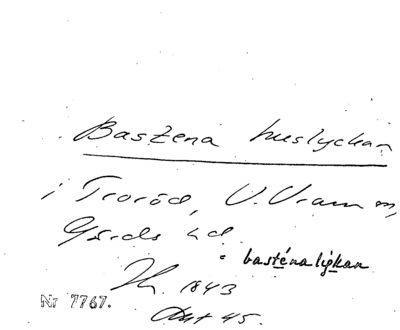 Bastena huslyckan
i Tvoröd, V. Vram sn,
Gärds hd.
= basténalýkan
1843
Nr 7767.
45.